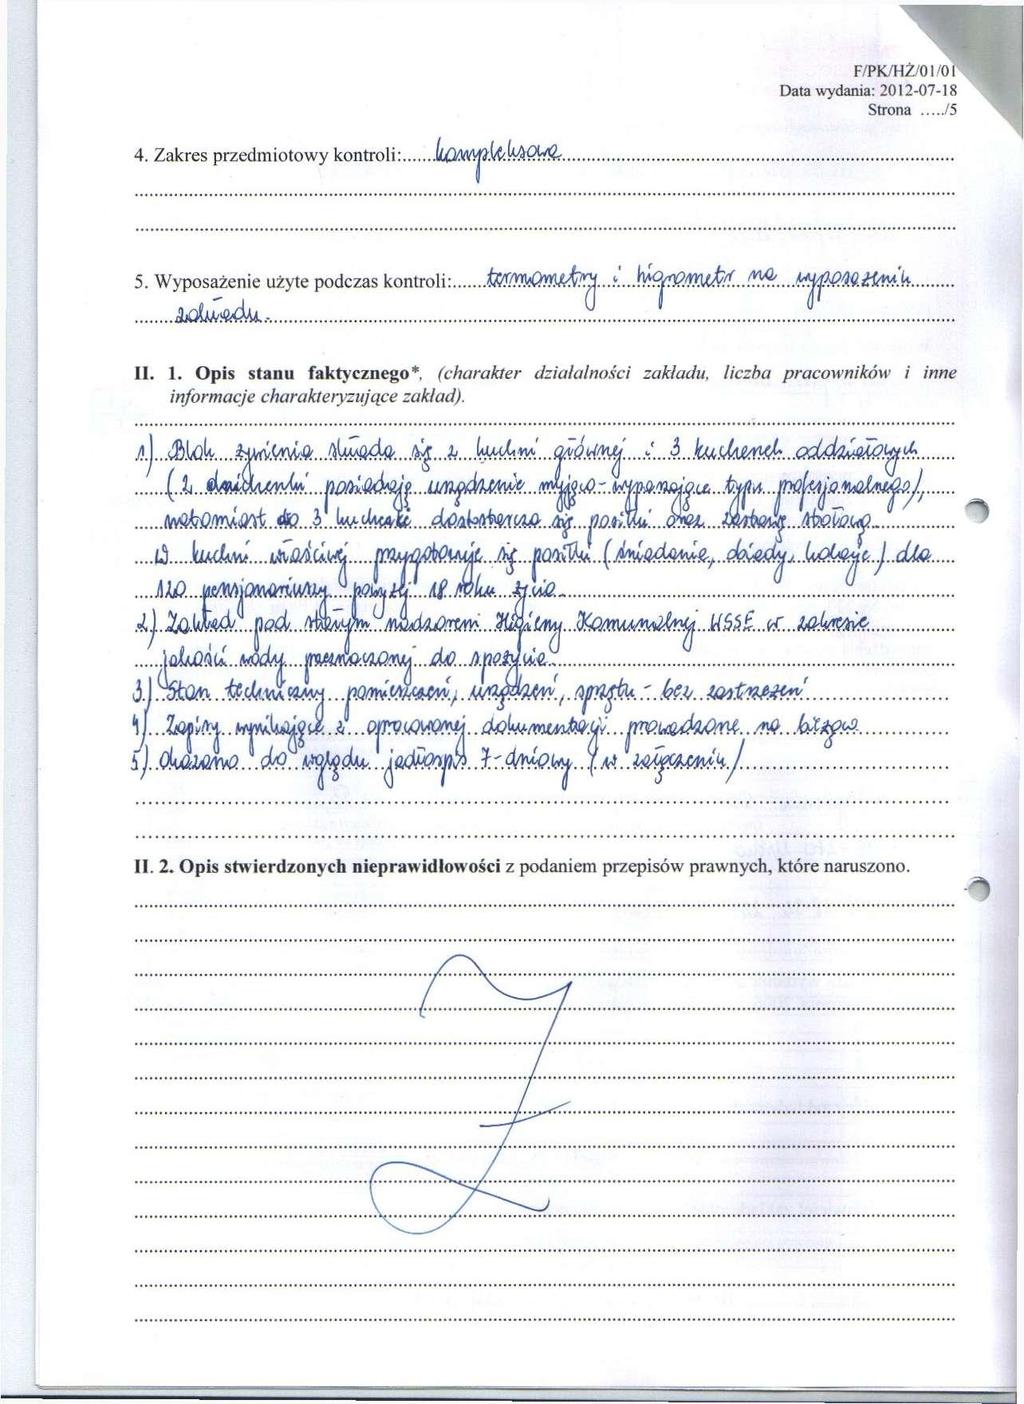 F/PK/HŻ/01/01
Data wydania: 2012-07-18
Strona ...../5
4. Zakres przedmiotowy kontroli:......kompleksowa
5. Wyposażenie użyte podczas kontroli:......termometry i higrometr na wyposażeniu
zakładu.
II. 1. Opis stanu faktycznego*, (charakter działalności zakładu, liczba pracowników i inne
informacje charakteryzujące zakład).
1) Blok żywienia składa się z kuchni głównej i 3 kuchenek oddziałowych
( 2 posiadają urządzenie myjąco-wyparzające typu profesjonalnego/,
natomiast do 3 kuchenki dostarcza się posiłki oraz zastawę stołową.
W kuchni właściwej przygotowuje się posiłki (śniadanie, obiady, kolacje) dla
120 pensjonariuszy powyżej 18 roku życia.
2) Zakład pod stałym nadzorem Higieny Komunalnej WSSE w zakresie
jakości wody przeznaczonej do spożycia.
3.) Stan techniczny pomieszczeń, urządzeń, sprzętu - bez zastrzeżeń
4) Zapisy wynikające z opracowanej dokumentacji prowadzone na bieżąco
5) Okazano do wglądu jadłospis 7-dniowy / w załączeniu /
II. 2. Opis stwierdzonych nieprawidłowości z podaniem przepisów prawnych, które naruszono.